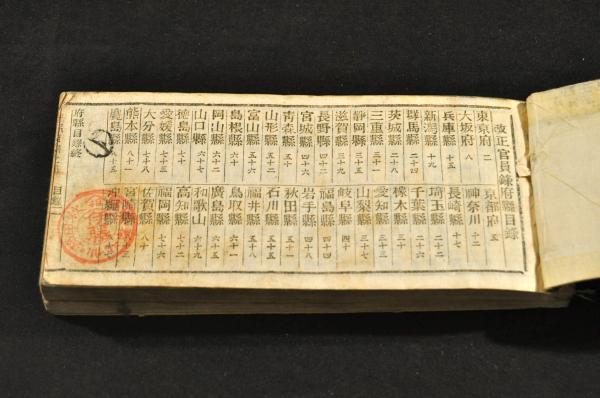 改正官員録府縣目録
東京府 二 京都府 五
大坂府 八 神奈川 十二
兵庫縣 十五 長崎縣 十七
新潟縣 十九 埼玉縣 二十二
群馬縣 二十四 千葉縣 二十六
茨城縣 二十八 橡木縣
三重縣 三十一 愛知縣 三十三
靜岡縣 三十五 山梨縣 三十七
滋賀縣 三十九 岐阜縣 四十
長野縣 四十二 福島縣 四十四
宮城縣 四十六 岩手縣 四十八
青森縣 五十 秋田縣 五十一
山形縣 石川縣
富山縣 五十六 福井縣 五十八
島根縣 六十 鳥取縣 六十一
岡山縣 廣島縣
山口縣 六十七 和歌山
德島縣 高知縣
愛媛縣 福岡縣
大分縣 七十八 佐賀縣 八十
熊本縣 八十一 宮崎縣
鹿島縣 八十五 沖縄縣
府縣目録終